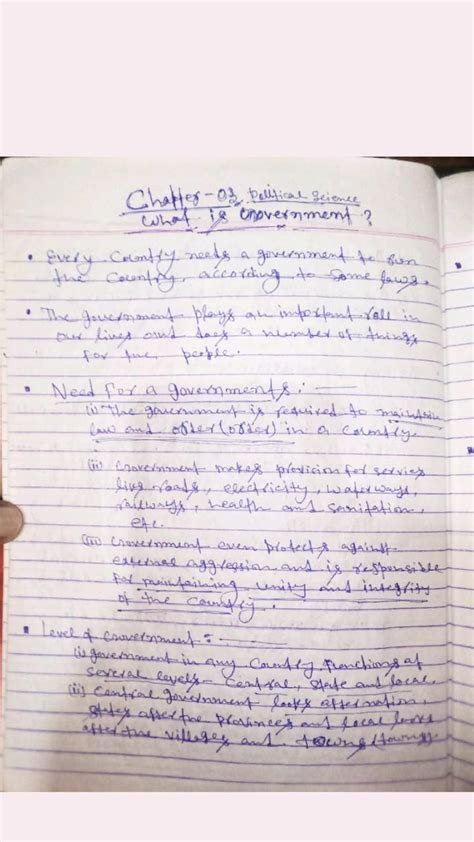 Chapter-03 Political Science
What is Government?
• Every Country needs a government to run
the Country, according to some laws.
• The government plays an important roll in
our lives and does a number of things
for the people.
• Need for a governments: —
(i) The government is required to maintain
law and order (order) in a country.
(ii) Government makes provision for services
like roads, electricity, waterways,
railways, health and sanitation,
etc.
(iii) Government even protects against
external aggression and is responsible
for maintaining unity and integrity
of the country.
• Level of Government: —
(i) government in any Country functions at
several levels - Central, state and local.
(ii) Central government looks after nation,
states after the provinces and local looks
after the villages and towns (towns).